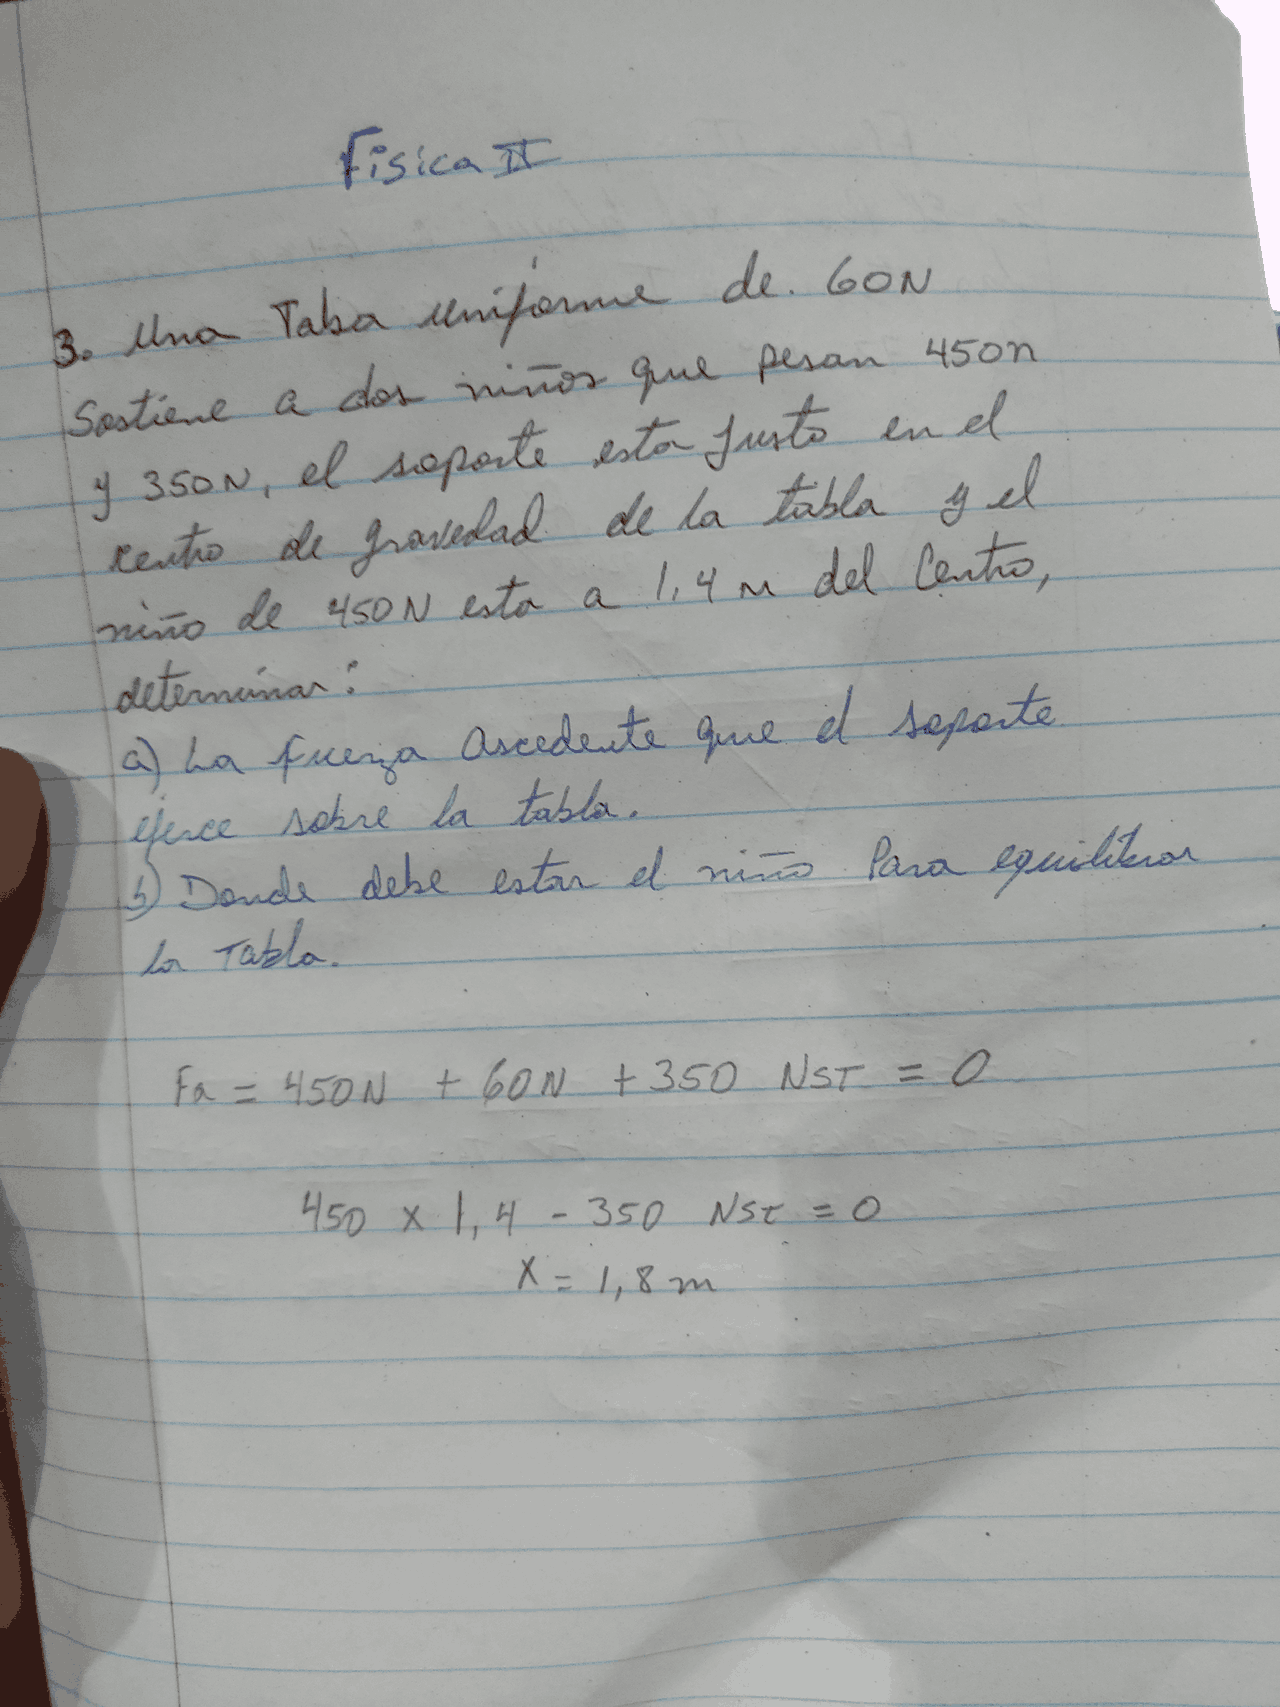 Fisica II
3. Una Taba uniforme de. 60N
Sostiene a dos niños que pesan 450n
y 350N, el soporte esta justo en el
centro de gravedad de la tabla y el
niño de 450N esta a 1,4 m del Centro,
determinar:
a) La fuerza Ascedente que el soporte
ejerce sobre la tabla.
b) Donde debe estar el niño Para equilibrar
la Tabla.
Fa = 450N + 60N + 350 NST = 0
450 x 1,4 - 350 NST = 0
X = 1,8 m